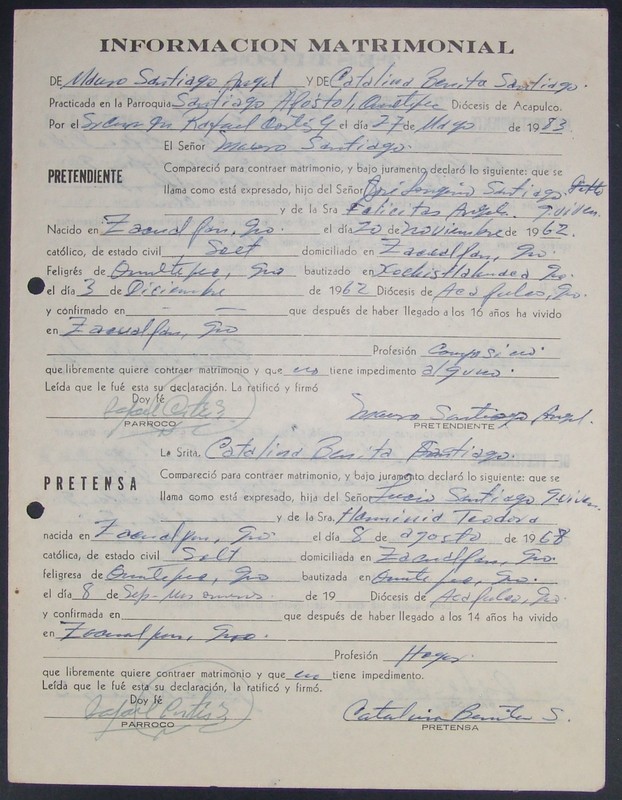 INFORMACION MATRIMONIAL
DE Mauro Santiago Angel Y DE Catalina Benita Santiago.
Practicada en la Parroquia Santiago Apostol, Ometepec Diócesis de Acapulco.
Por el Rafael Cortés el día 27 de Mayo de 1983
El Señor Mauro Santiago.
PRETENDIENTE
Compareció para contraer matrimonio, y bajo juramento declaró lo siguiente: que se
llama como está expresado, hijo del Señor Santiago
y de la Sra Felicitas Angel. q. viven.
Nacido en Zacualpan, Gro. el día 20 de noviembre de 1962.
católico, de estado civil Solt domiciliado en Zacualpan, Gro.
Feligrés de Ometepec, Gro bautizado en Xochistlahuaca Gro.
el día 3 de Diciembre de 1962 Diócesis de Acapulco, Gro.
y confirmado en — — que después de haber llegado a los 16 años ha vivido
en Zacualpan, Gro
Profesión Campesino.
que libremente quiere contraer matrimonio y que no tiene impedimento alguno.
Leída que le fué esta su declaración. La ratificó y firmó
Doy fé
Rafael Cortés
PARROCO
Mauro Santiago Angel.
PRETENDIENTE
La Srita. Catalina Benita Santiago.
PRETENSA
Compareció para contraer matrimonio, y bajo juramento declaró lo siguiente: que se
llama como está expresado, hija del Señor Lucio Santiago q. viven.
y de la Sra. Teodora
nacida en Zacualpan, Gro el día 8 de agosto de 1968
católica, de estado civil Solt domiciliada en Zacualpan, Gro.
feligresa de Ometepec, Gro bautizada en Ometepec, Gro.
el día 8 de Sep. de 19 Diócesis de Acapulco, Gro.
y confirmada en que después de haber llegado a los 14 años ha vivido
en Zacualpan, Gro.
Profesión Hogar.
que libremente quiere contraer matrimonio y que no tiene impedimento.
Leída que le fué esta su declaración, la ratificó y firmó.
Doy fé
Rafael Cortés
PARROCO
Catalina Benita S.
PRETENSA